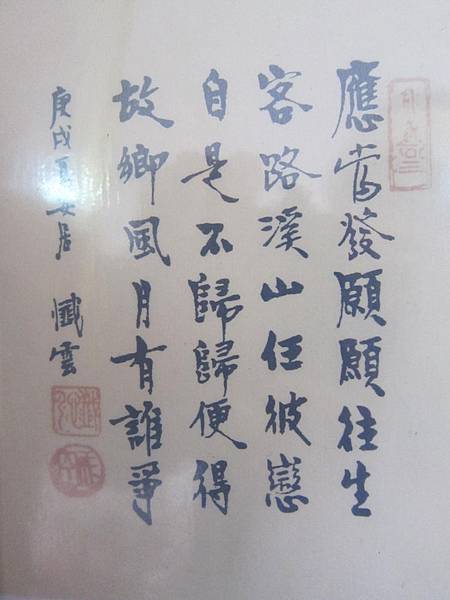 應當發願願往生
客路溪山任彼戀
自是不歸歸便得
故鄉風月有誰爭
庚戌夏安居 懺雲